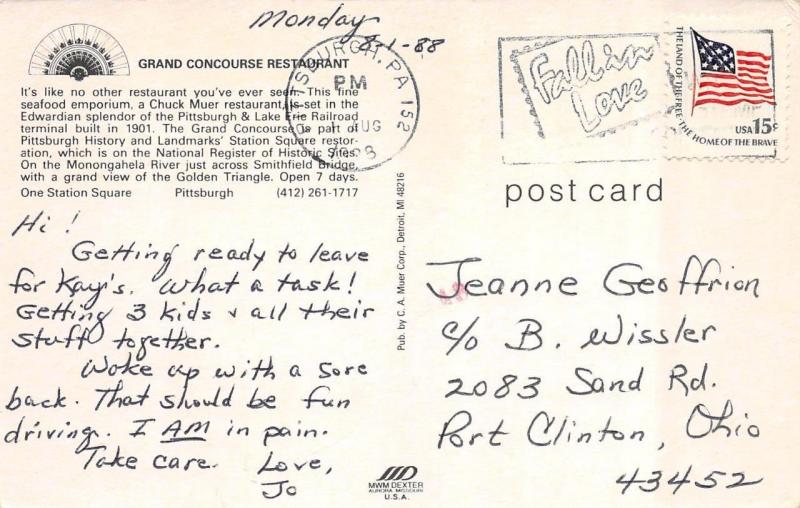 Monday
8-1-88
GRAND CONCOURSE RESTAURANT
It's like no other restaurant you've ever seen. This fine
seafood emporium, a Chuck Muer restaurant, is set in the
Edwardian splendor of the Pittsburgh & Lake Erie Railroad
terminal built in 1901. The Grand Concourse is part of
Pittsburgh History and Landmarks' Station Square restor-
ation, which is on the National Register of Historic Sites.
On the Monongahela River just across Smithfield Bridge,
with a grand view of the Golden Triangle. Open 7 days.
One Station Square Pittsburgh (412) 261-1717
Hi!
Getting ready to leave
for Kay's. What a task!
Getting 3 kids & all their
stuff together.
Woke up with a sore
back. That should be fun
driving. I AM in pain.
Take care. Love,
Jo
PITTSBURGH, PA 152
PM
1 AUG
1988
Fall in
Love
THE LAND OF THE FREE · THE HOME OF THE BRAVE
USA 15c
post card
Pub. by C. A. Muer Corp., Detroit, MI 48216
Jeanne Geoffrion
c/o B. Wissler
2083 Sand Rd.
Port Clinton, Ohio
43452
MWM DEXTER
AURORA, MISSOURI
U.S.A.